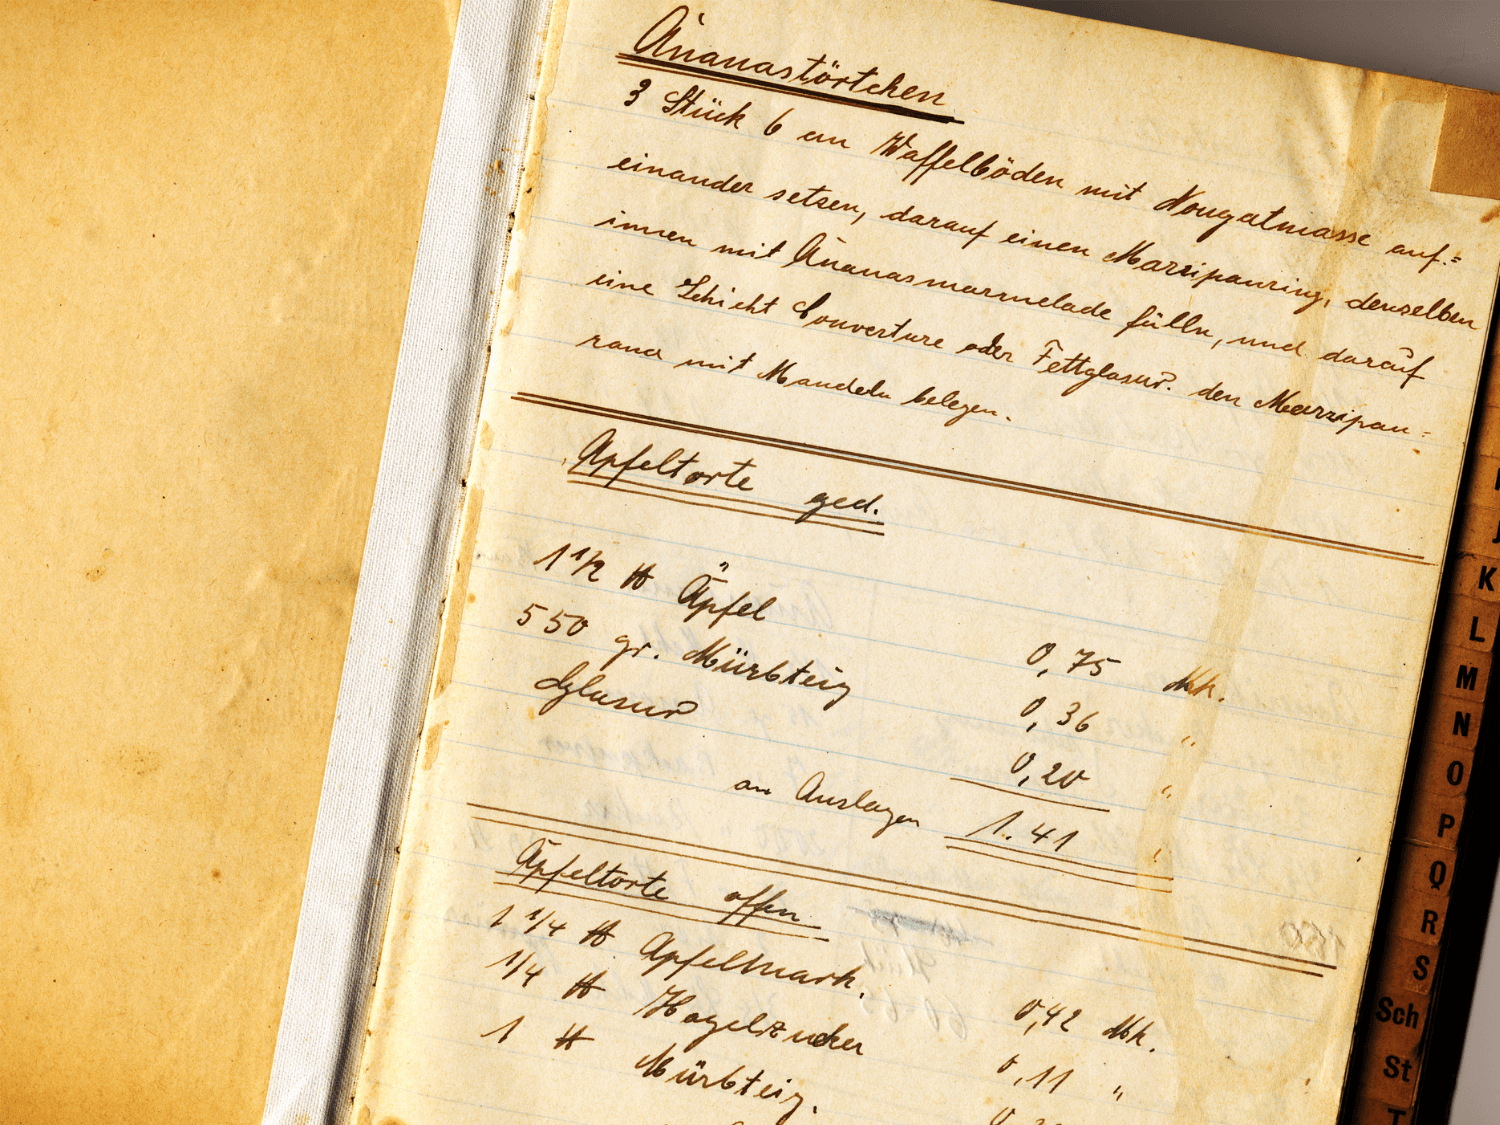 Ananastörtchen
3 Stück 6 cm Waffelböden mit Nougatmasse auf=
einander setzen, darauf einen Marzipanring, denselben
innen mit Ananasmarmelade fülln, und darauf
eine Schicht Couverture oder Fettglasur. den Marzipan=
rand mit Mandeln belegen.
Apfeltorte ged.
1 1/2 ℔ Äpfel 0,75 Mk.
550 gr. Mürbteig 0,36 "
Glasur 0,20 "
an Auslagen 1.41 "
Apfeltorte offen
1 1/4 ℔ Apfelmark. 0,42 Mk.
1/4 ℔ Hagelzucker 0,11 "
1 ℔ Mürbteig.
J
K
L
M
N
O
P
Q
R
S
Sch
St
T